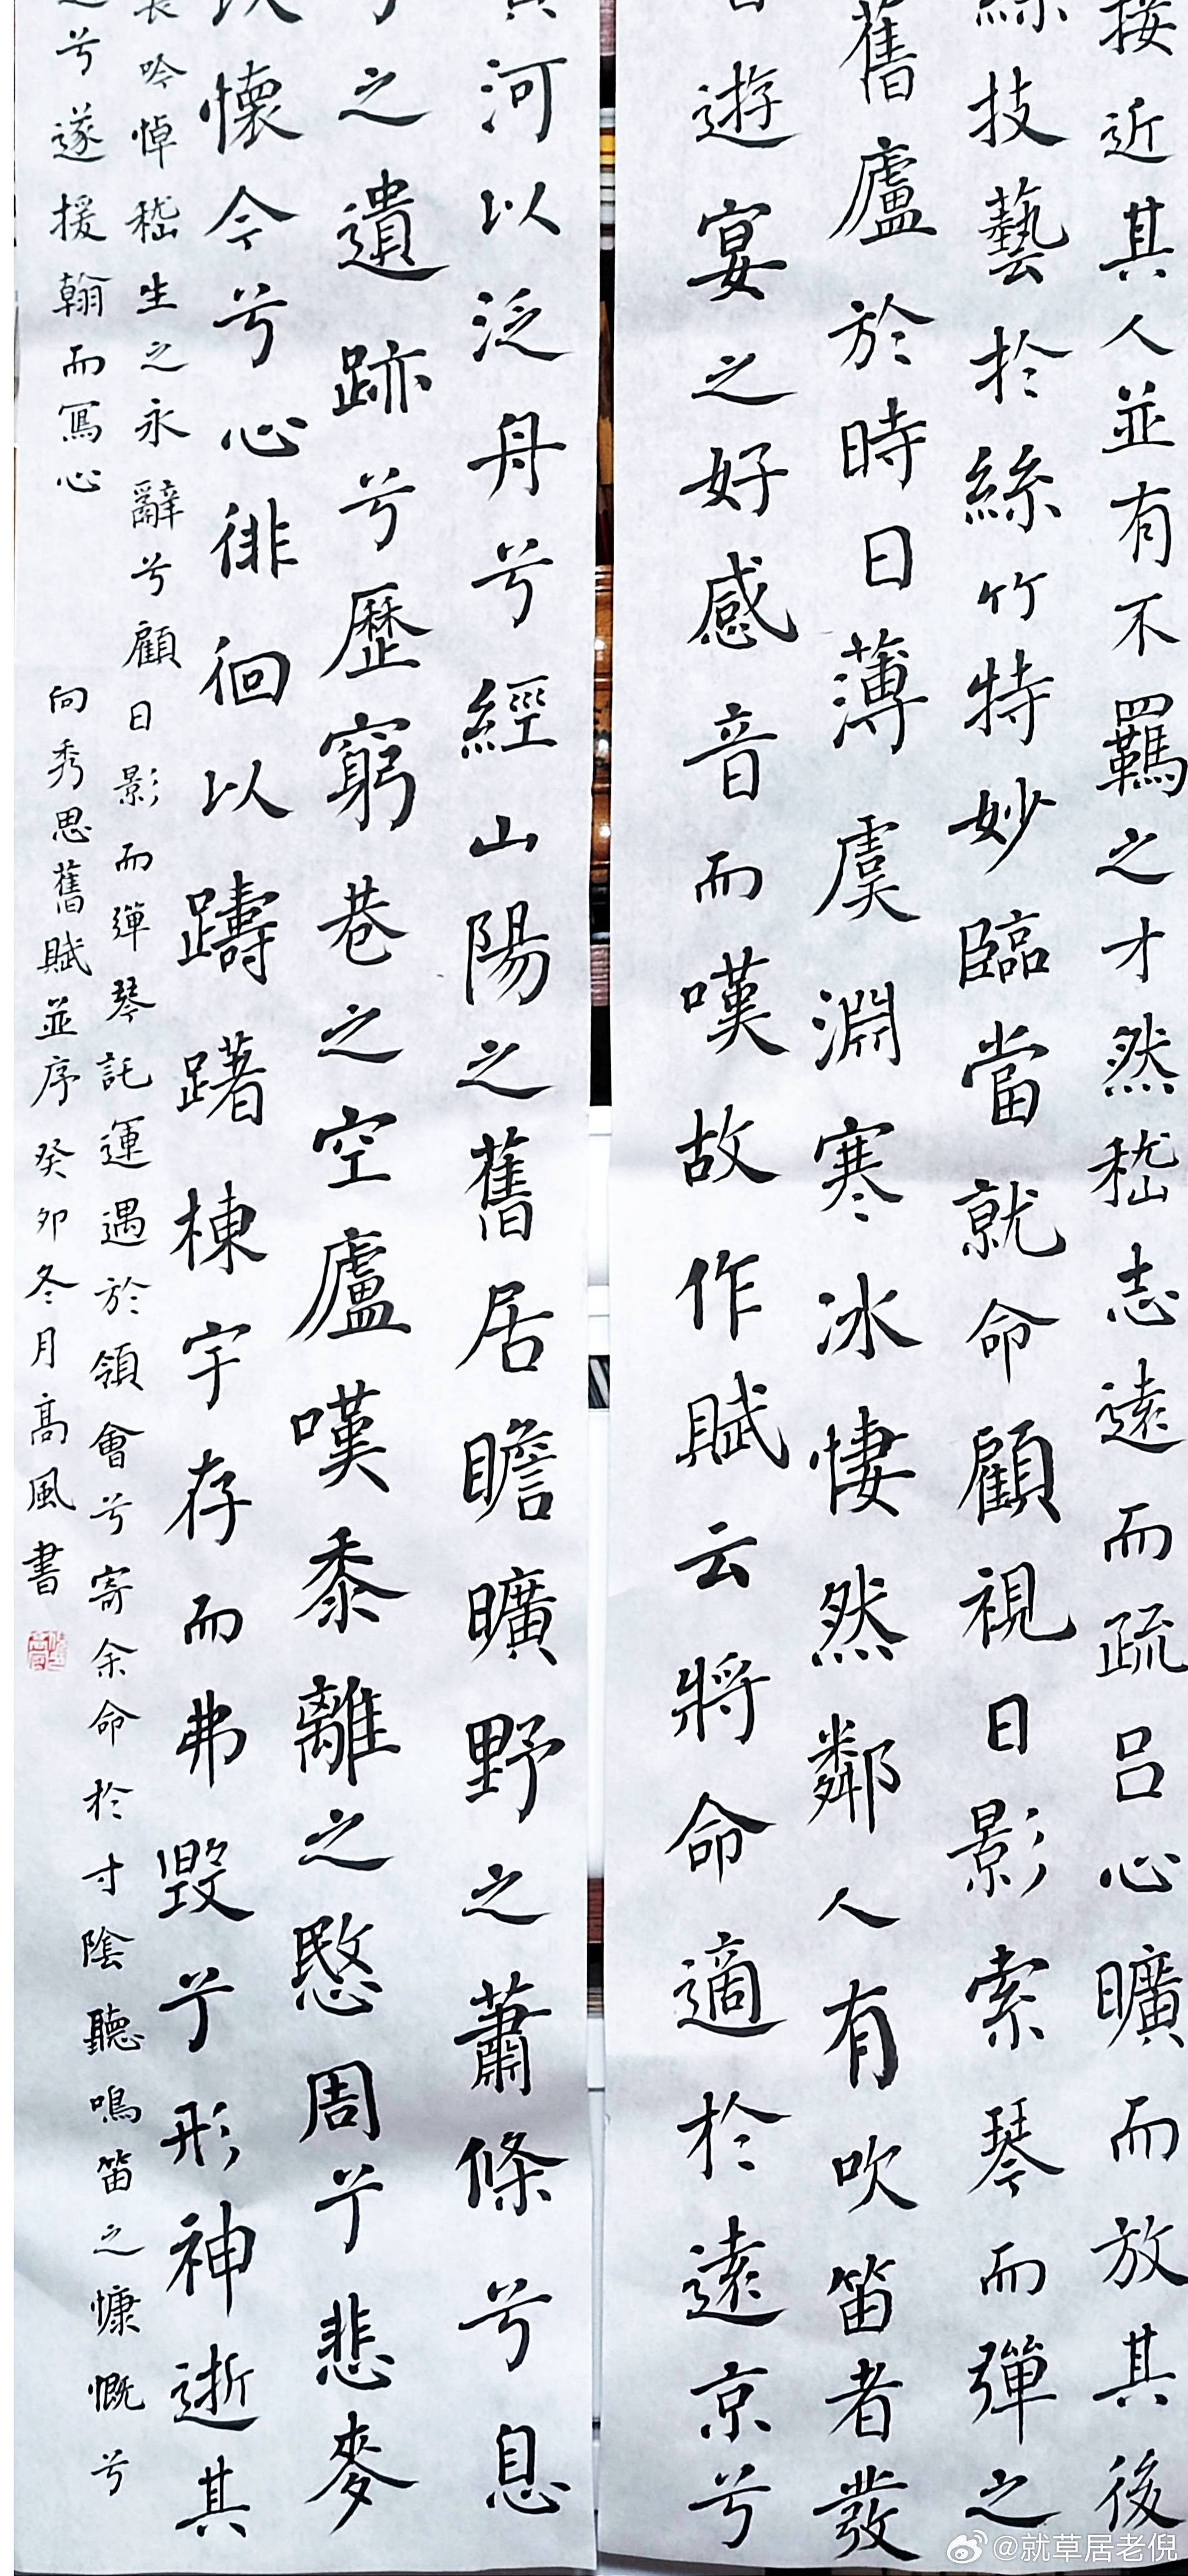 接近其人並有不羈之才然嵇志遠而疏呂心曠而放其後
技藝於絲竹特妙臨當就命顧視日影索琴而彈之
舊廬於時日薄虞淵寒冰悽然鄰人有吹笛者發
遊宴之好感音而嘆故作賦云將命適於遠京兮
河以泛舟兮經山陽之舊居瞻曠野之蕭條兮息
之遺跡兮歷窮巷之空廬嘆黍離之愍周兮悲麥
以懷今兮心徘徊以躊躇棟宇存而弗毀兮形神逝其
吟悼嵇生之永辭兮顧日影而彈琴託運遇於領會兮寄余命於寸陰聽鳴笛之慷慨兮
兮遂援翰而寫心
向秀思舊賦並序 癸卯冬月高風書
@就草居老倪